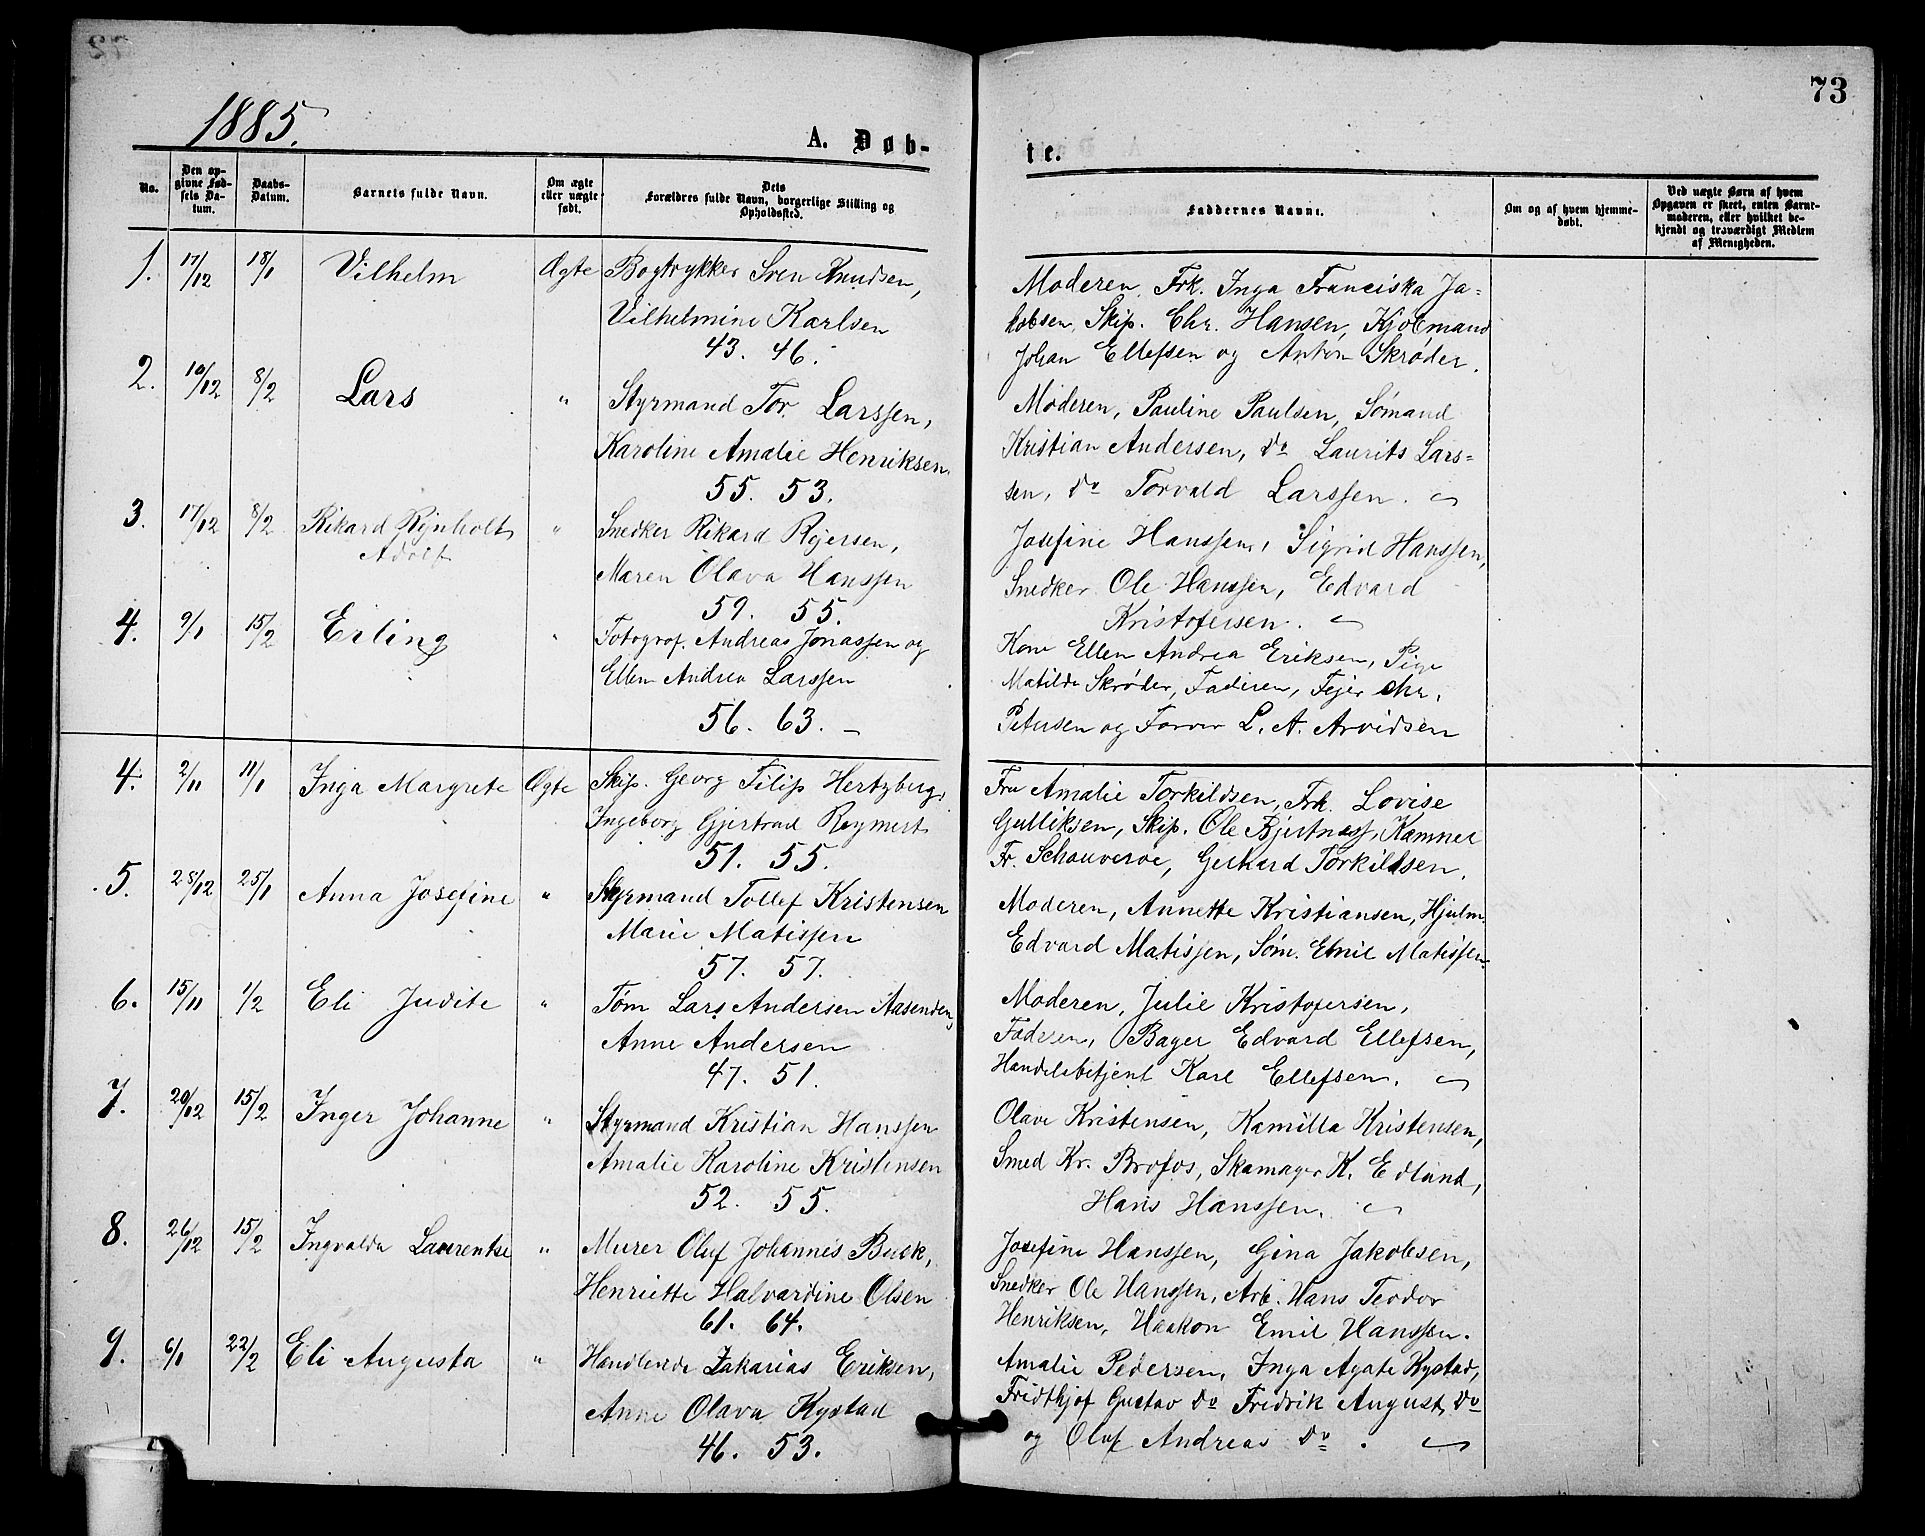 73
1885.
A. Døb-
te.
No.
Den op-
givne Fød-
sels Da-
tum.
Daabs-
Datum.
Barnets fulde Navn.
Om ægte
eller uægte
født.
Dets
Forældres fulde Navn, borgerlige Stilling og
Opholdssted.
Faddernes Navne.
Om og af hvem hjemme-
døbt.
Ved uægte Børn af hvem
Opgaven er skeet, enten Barne-
moderen, eller hvilket be-
kjendt og troværdigt Medlem
af Menigheden.
1. 17/12 18/1 Vilhelm Ægte Bogtrykker Sven Knudsen,
Vilhelmine Karlsen
43. 46.
Moderen, Frk. Inga Franciska Ja-
kobsen, Skip. Chr. Hansen, Kjøbmand
Johan Ellefsen og Anton Skrøder.
2. 10/12 8/2 Lars " Styrmand Tor Larssen,
Karoline Amalie Henriksen
55. 53.
Moderen, Pauline Paulsen, Sømand
Kristian Andersen, do Laurits Lars-
sen, do Torvald Larssen.
3. 17/12 8/2 Rikard Rejnholt
Adolf
" Snedker Rikard Rejersen,
Maren Olava Hanssen
59. 55.
Josefine Hanssen, Sigrid Hanssen,
Snedker Ole Hanssen, Edvard
Kristofersen.
4. 9/1 15/2 Erling " Fotograf. Andreas Jonassen og
Ellen Andrea Larssen
56. 63. —
Kone Ellen Andrea Eriksen, Pige
Matilde Skrøder, Faderen, Fejer Chr.
Petersen og Farver L. A. Arvidsen
4. 2/11 11/1 Inga Margrete Ægte Skip. Georg Filip Hertzberg,
Ingeborg Gjertrud Reymert
51. 55.
Fru Amalie Torkildsen, Frk. Lovise
Gulliksen, Skip. Ole Bjertnæss, Kæmner
Fr. Schouveroe, Gerhard Torkildsen.
5. 28/12 25/1 Anna Josefine " Styrmand Tollef Kristensen
Marie Matissen
57. 57.
Moderen, Annette Kristiansen, Hjulm.
Edvard Matissen, Søm. Emil Matissen.
6. 15/11 1/2 Eli Judite " Tøm Lars Andersen Aasenden,
Anne Andersen
47. 51.
Moderen, Julie Kristofersen,
Faderen, Bager Edvard Ellefsen,
Handelsbetjent Karl Ellefsen.
7. 20/12 15/2 Inger Johanne " Styrmand Kristian Hanssen
Amalie Karoline Kristensen
52. 55.
Olava Kristensen, Kamilla Kristensen,
Smed Kr. Brofos, Skomager K. Edlund,
Hans Hanssen.
8. 26/12 15/2 Ingvalda Laurentse " Murer Oluf Johannes Buck,
Henriette Halvardine Olsen
61. 64.
Josefine Hanssen, Gina Jakobsen,
Snedker Ole Hanssen, Arb. Hans Teodor
Henriksen, Haakon Emil Hanssen.
9. 6/1 22/2 Eli Augusta " Handlende Zakarias Eriksen,
Anne Olava Kystad
46. 53.
Amalie Pedersen, Inga Agate Kystad,
Fridthjof Gustav do Fredrik August do
og Oluf Andreas do.